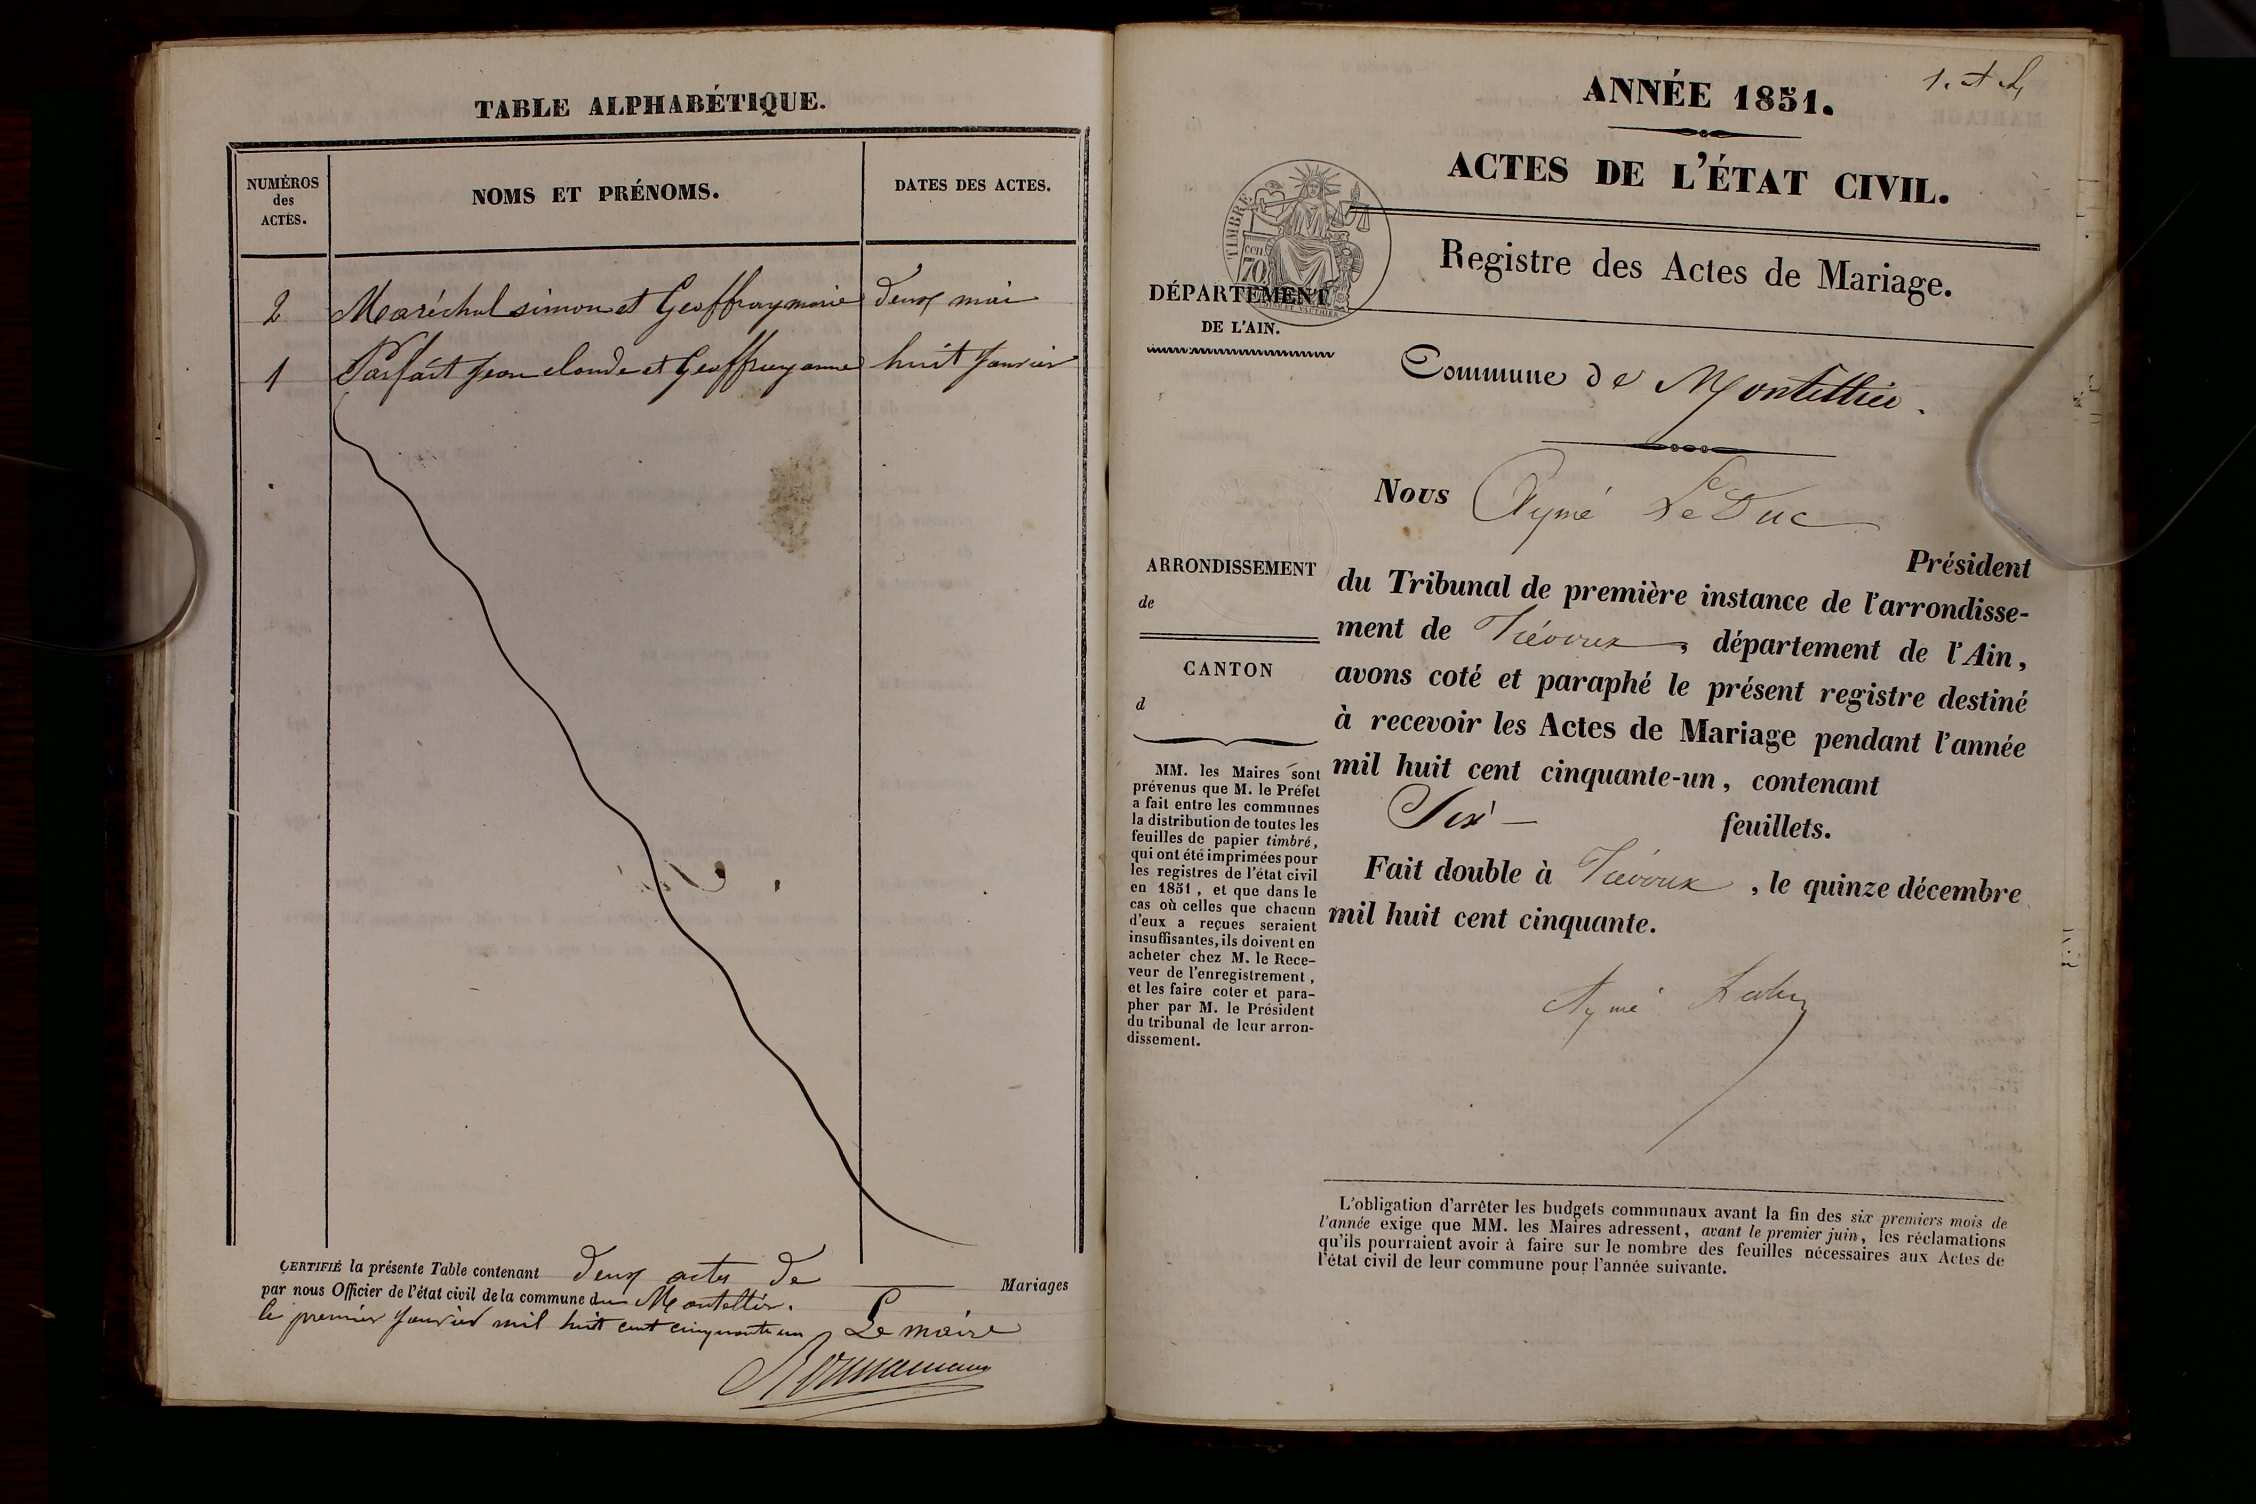 TABLE ALPHABÉTIQUE.
NUMÉROS
des
ACTES.
NOMS ET PRÉNOMS.
DATES DES ACTES.
2 Maréchal simon et Geoffray marie deux mai
1 Parfait Jean claude et Geoffray anne huit Janvier
CERTIFIÉ la présente Table contenant deux actes de Mariages
par nous Officier de l'état civil de la commune du Montellier.
le premier Janvier mil huit cent cinquante un Le maire
1.
ANNÉE 1851.
ACTES DE L'ÉTAT CIVIL.
TIMBRE
70
Registre des Actes de Mariage.
DÉPARTEMENT
DE L'AIN.
Commune de Montellier.
Nous Aymé Le Duc
Président
du Tribunal de première instance de l'arrondisse-
ment de Trévoux, département de l'Ain,
avons coté et paraphé le présent registre destiné
à recevoir les Actes de Mariage pendant l'année
mil huit cent cinquante-un, contenant
Six feuillets.
Fait double à Trévoux, le quinze décembre
mil huit cent cinquante.
Aymé
ARRONDISSEMENT
de
CANTON
d
MM. les Maires sont
prévenus que M. le Préfet
a fait entre les communes
la distribution de toutes les
feuilles de papier timbré,
qui ont été imprimées pour
les registres de l'état civil
en 1851, et que dans le
cas où celles que chacun
d'eux a reçues seraient
insuffisantes, ils doivent en
acheter chez M. le Rece-
veur de l'enregistrement,
et les faire coter et para-
pher par M. le Président
du tribunal de leur arron-
dissement.
L'obligation d'arrêter les budgets communaux avant la fin des six premiers mois de
l'année exige que MM. les Maires adressent, avant le premier juin, les réclamations
qu'ils pourraient avoir à faire sur le nombre des feuilles nécessaires aux Actes de
l'état civil de leur commune pour l'année suivante.